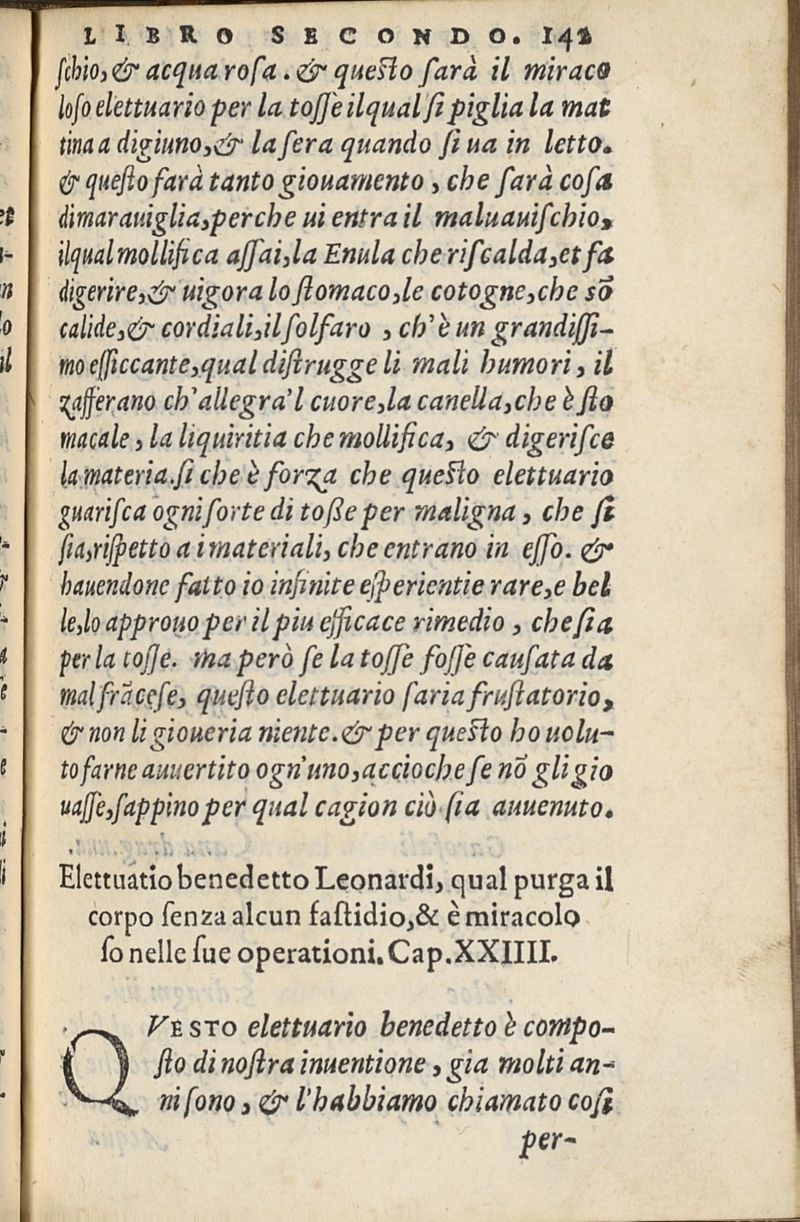 LIBRO SECONDO. 142
ſchio, & acqua roſa. & queſto ſarà il miraco
loſo elettuario per la toſſe ilqual ſi piglia la mat
tina a digiuno, & la ſera quando ſi ua in letto.
& queſto farà tanto giouamento, che ſarà coſa
di marauiglia, perche ui entra il maluauiſchio,
ilqual mollifica aſſai, la Enula che riſcalda, et fa
digerire, & uigora lo ſtomaco, le cotogne, che sō
calide, & cordiali, il ſolfaro, ch'è un grandiſſi-
mo eſſiccante, qual diſtrugge li mali humori, il
zafferano ch'allegra'l cuore, la canella, che è ſto
macale, la liquiritia che mollifica, & digeriſce
la materia. ſi che è forza che queſto elettuario
guariſca ogni ſorte di toße per maligna, che ſi
ſia, riſpetto a i materiali, che entrano in eſſo. &
hauendone fatto io infinite eſperientie rare, e bel
le, lo approuo per il piu efficace rimedio, che ſia
per la toſſe. ma però ſe la toſſe foſſe cauſata da
mal frāceſe, queſto elettuario ſaria fruſtatorio,
& non li gioueria niente. & per queſto ho uolu-
to farne auuertito ogn'uno, accioche ſe nō gli gio
uaſſe, ſappino per qual cagion ciò ſia auuenuto.
Elettuatio benedetto Leonardi, qual purga il
corpo ſenza alcun faſtidio, & è miracolo
ſo nelle ſue operationi. Cap. XXIIII.
QVESTO elettuario benedetto è compo-
ſto di noſtra inuentione, gia molti an-
ni ſono, & l'habbiamo chiamato coſi
per-